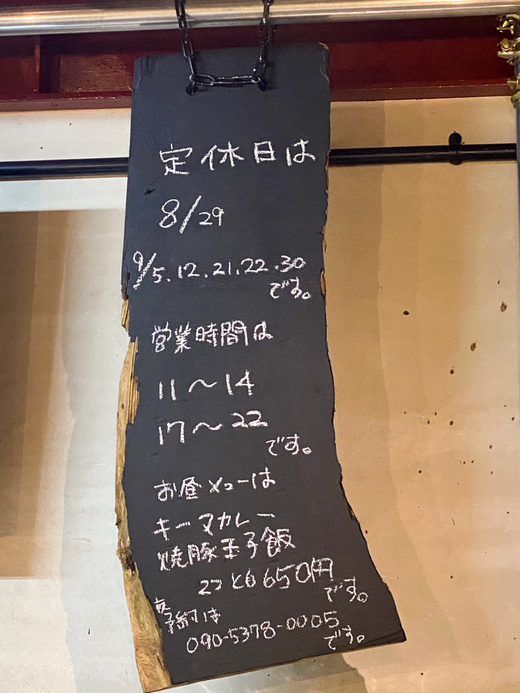 定休日は
8/29
9/5.12.21.22.30
です。
営業時間は
11〜14
17〜22
です。
お昼メニューは
キーマカレー
焼豚玉子飯
2つとも650円
です。
予約は
090-5378-0005
です。